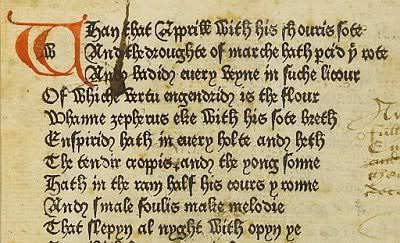 WHan that Apprill with his shouris sote
w And the droughte of marche hath pcid ẏ rote
And badid euery veyne in suche licour
Of whiche vertu engendrid is the flour
Whanne zepherus eke with his sote breth
Enspirid hath in euery holte and heth
The tendir croppis and the yong sonne
Hath in the ram half his cours y ronne
And smale foulis make melodie
That slepyn al nyght with opyn ye